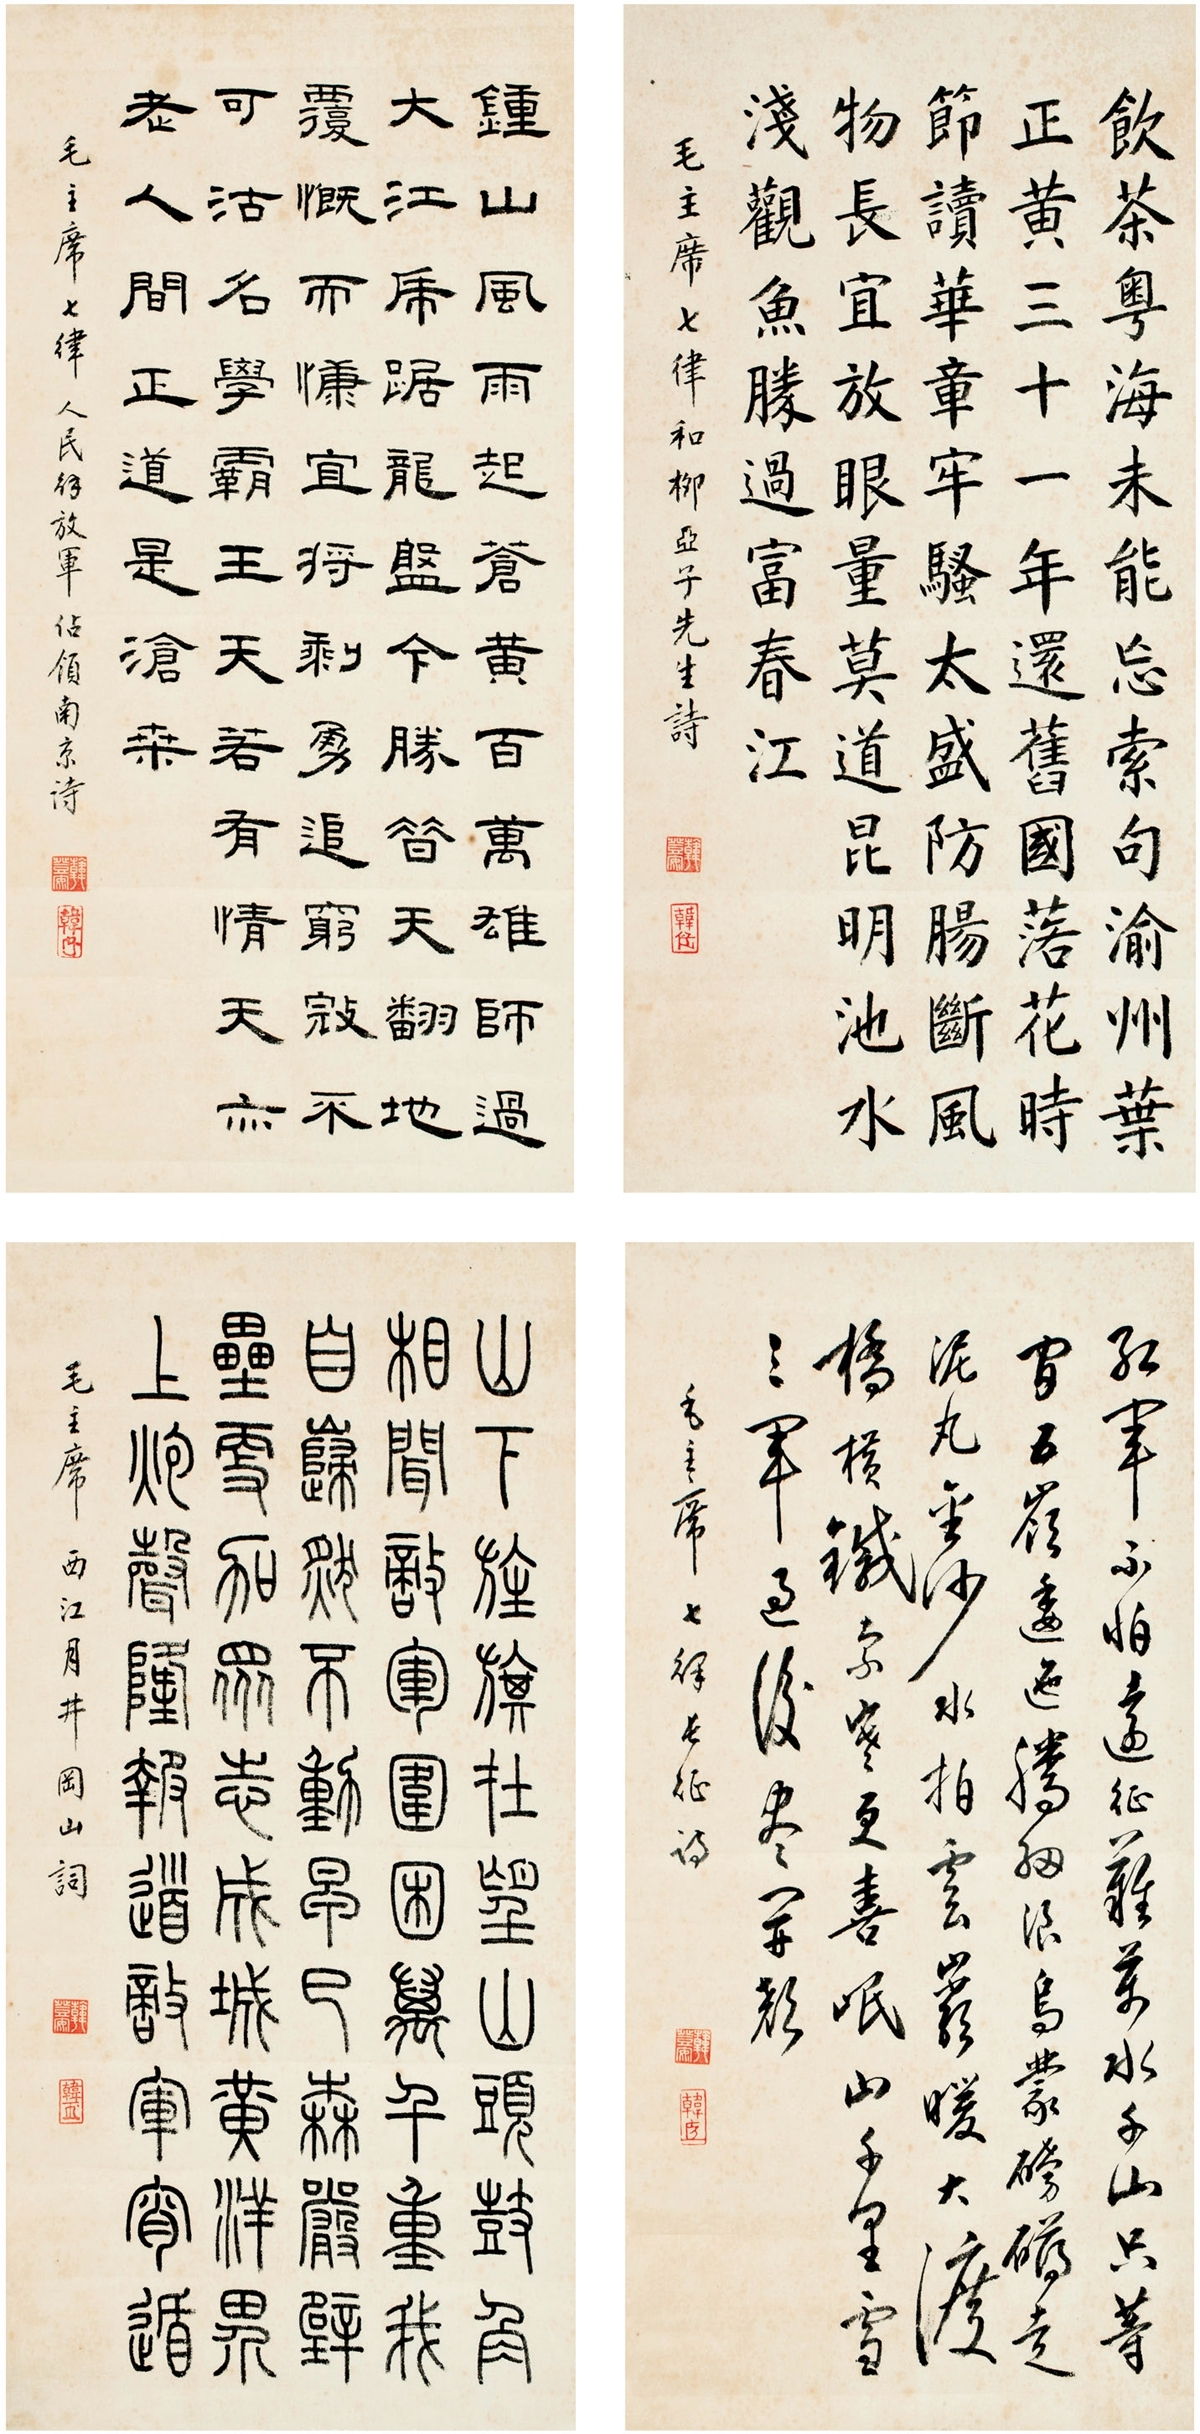 飲茶粵海未能忘索句渝州葉
正黃三十一年還舊國落花時
節讀華章牢騷太盛防腸斷風
物長宜放眼量莫道昆明池水
淺觀魚勝過富春江
毛主席七律和柳亞子先生詩
鍾山風雨起蒼黃百萬雄師過
大江虎踞龍盤今勝昔天翻地
覆慨而慷宜將剩勇追窮寇不
可沽名學霸王天若有情天亦
老人間正道是滄桑
毛主席七律人民解放軍佔領南京詩
紅軍不怕遠征難萬水千山只等
閒五嶺逶迤騰細浪烏蒙磅礴走
泥丸金沙水拍雲巖暖大渡
橋橫鐵索寒更喜岷山千里雪
三軍過後盡開顏
毛主席七律長征詩
山下旌旗在望山頭鼓角
相聞敵軍圍困萬千重我
自巋然不動早已森嚴壁
壘更加眾志成城黃洋界
上炮聲隆報道敵軍宵遁
毛主席西江月井岡山詞